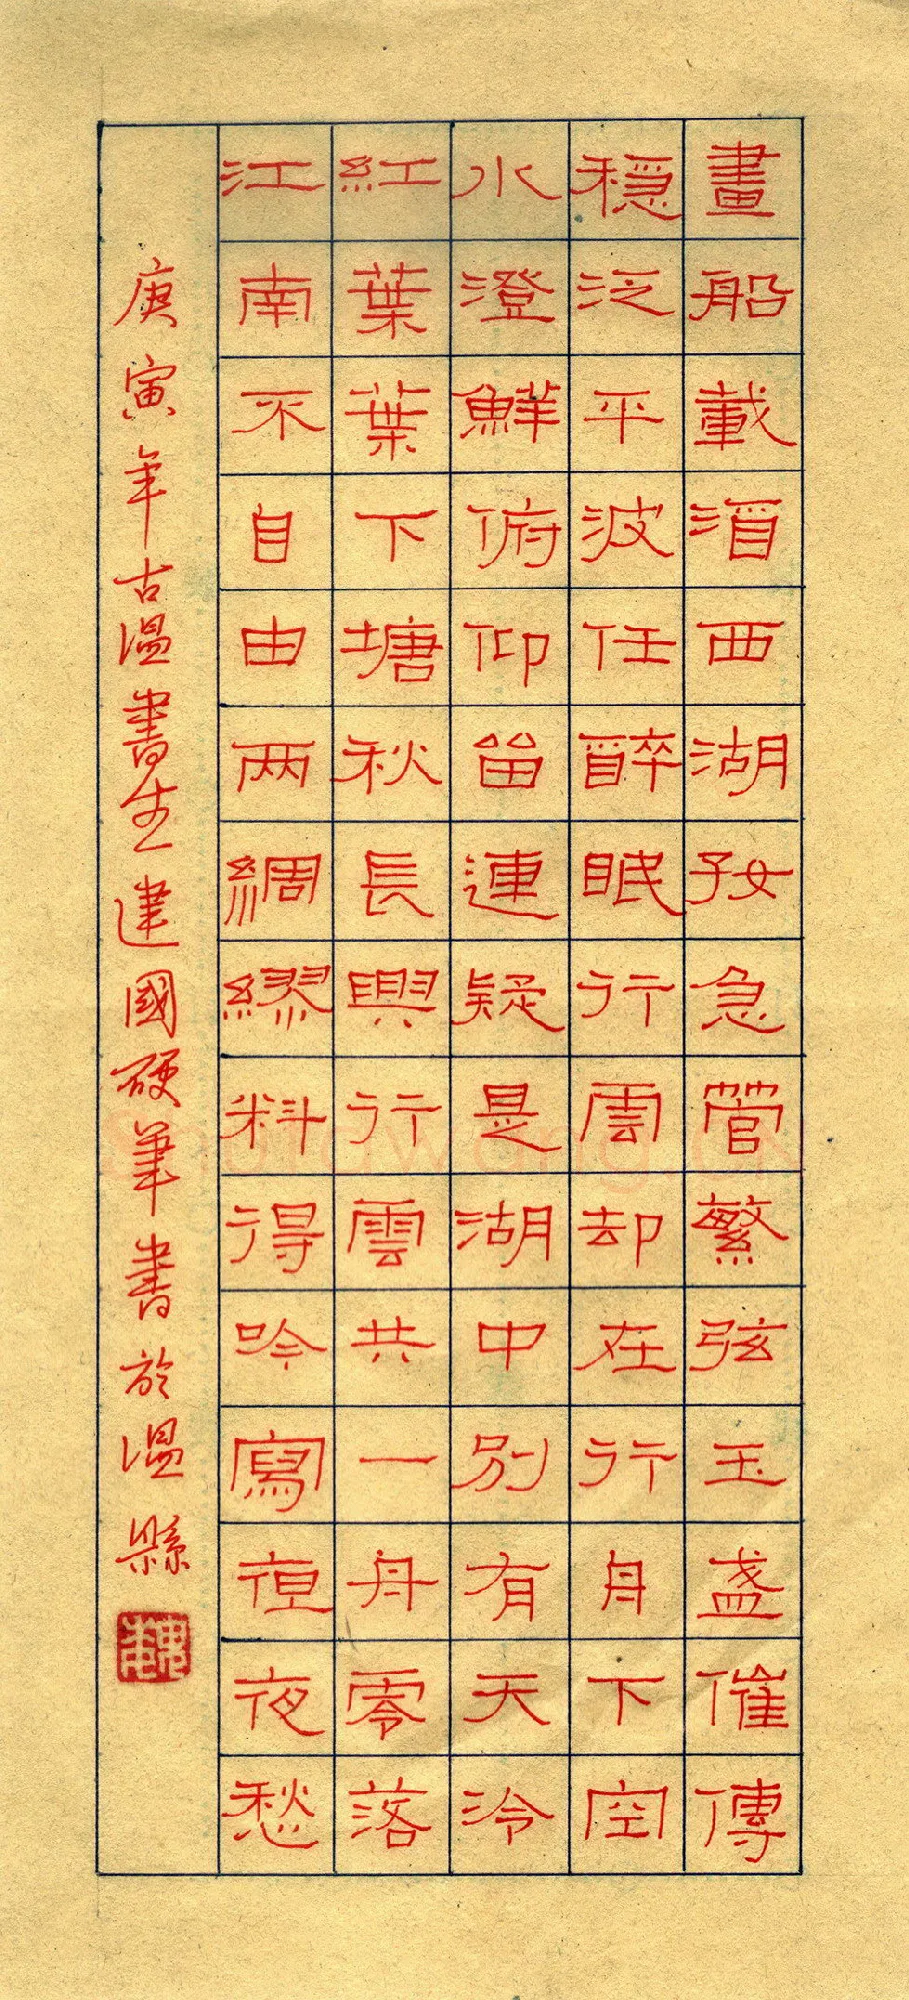 畫船載酒西湖好急管繁弦玉盞催傳
穩泛平波任醉眠行雲却在行舟下空
水澄鮮俯仰留連疑是湖中別有天泠
紅葉葉下塘秋長與行雲共一舟零落
江南不自由两綢繆料得吟寫夜夜愁
庚寅年古温書生建國硬筆書於温縣